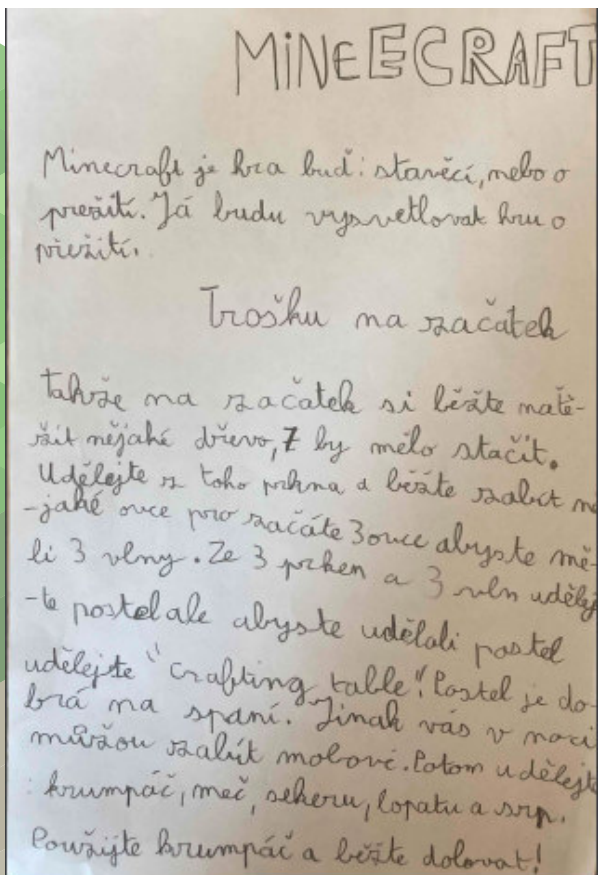 MINEECRAFT
Minecraft je hra buď: stavěcí, nebo o
prežití. Já budu vysvetlovat hru o
přežití.
Trošku na začátek
Takže na začátek si běžte natě-
žit nějaké dřevo, 7 by mělo stačit.
Udělejte z toho prkna a běžte zabít ně
-jaké ovce pro začáte 3 ovce abyste mě-
li 3 vlny. Ze 3 prken a 3 vln udělej
-te postel ale abyste udělali postel
udělejte "crafting table". Postel je do-
brá na spaní. Jinak vás v noci
můžou zabít mobové. Potom udělejte
: krumpáč, meč, sekeru, lopatu a srp.
Použijte krumpáč a běžte dolovat!